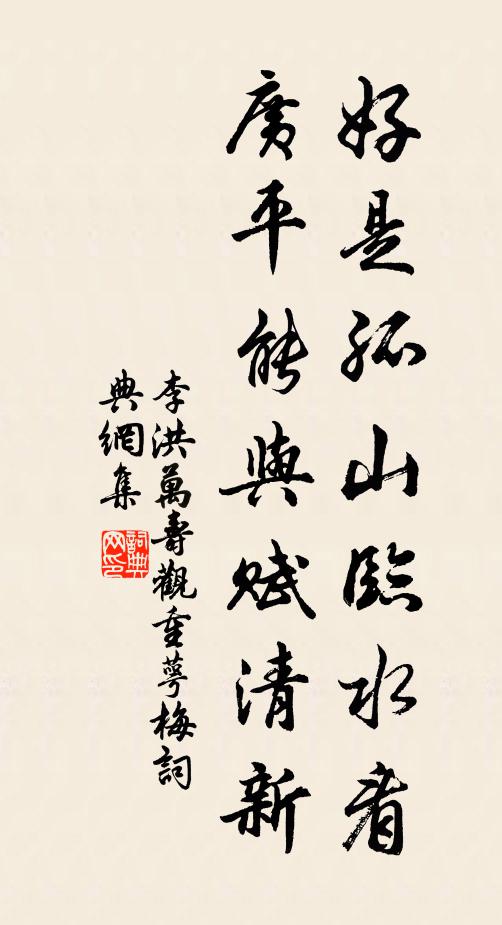 好是孤山臨水看
廣平能與賦清新
李洪萬壽觀重萼梅詞
典網集
詞典網印